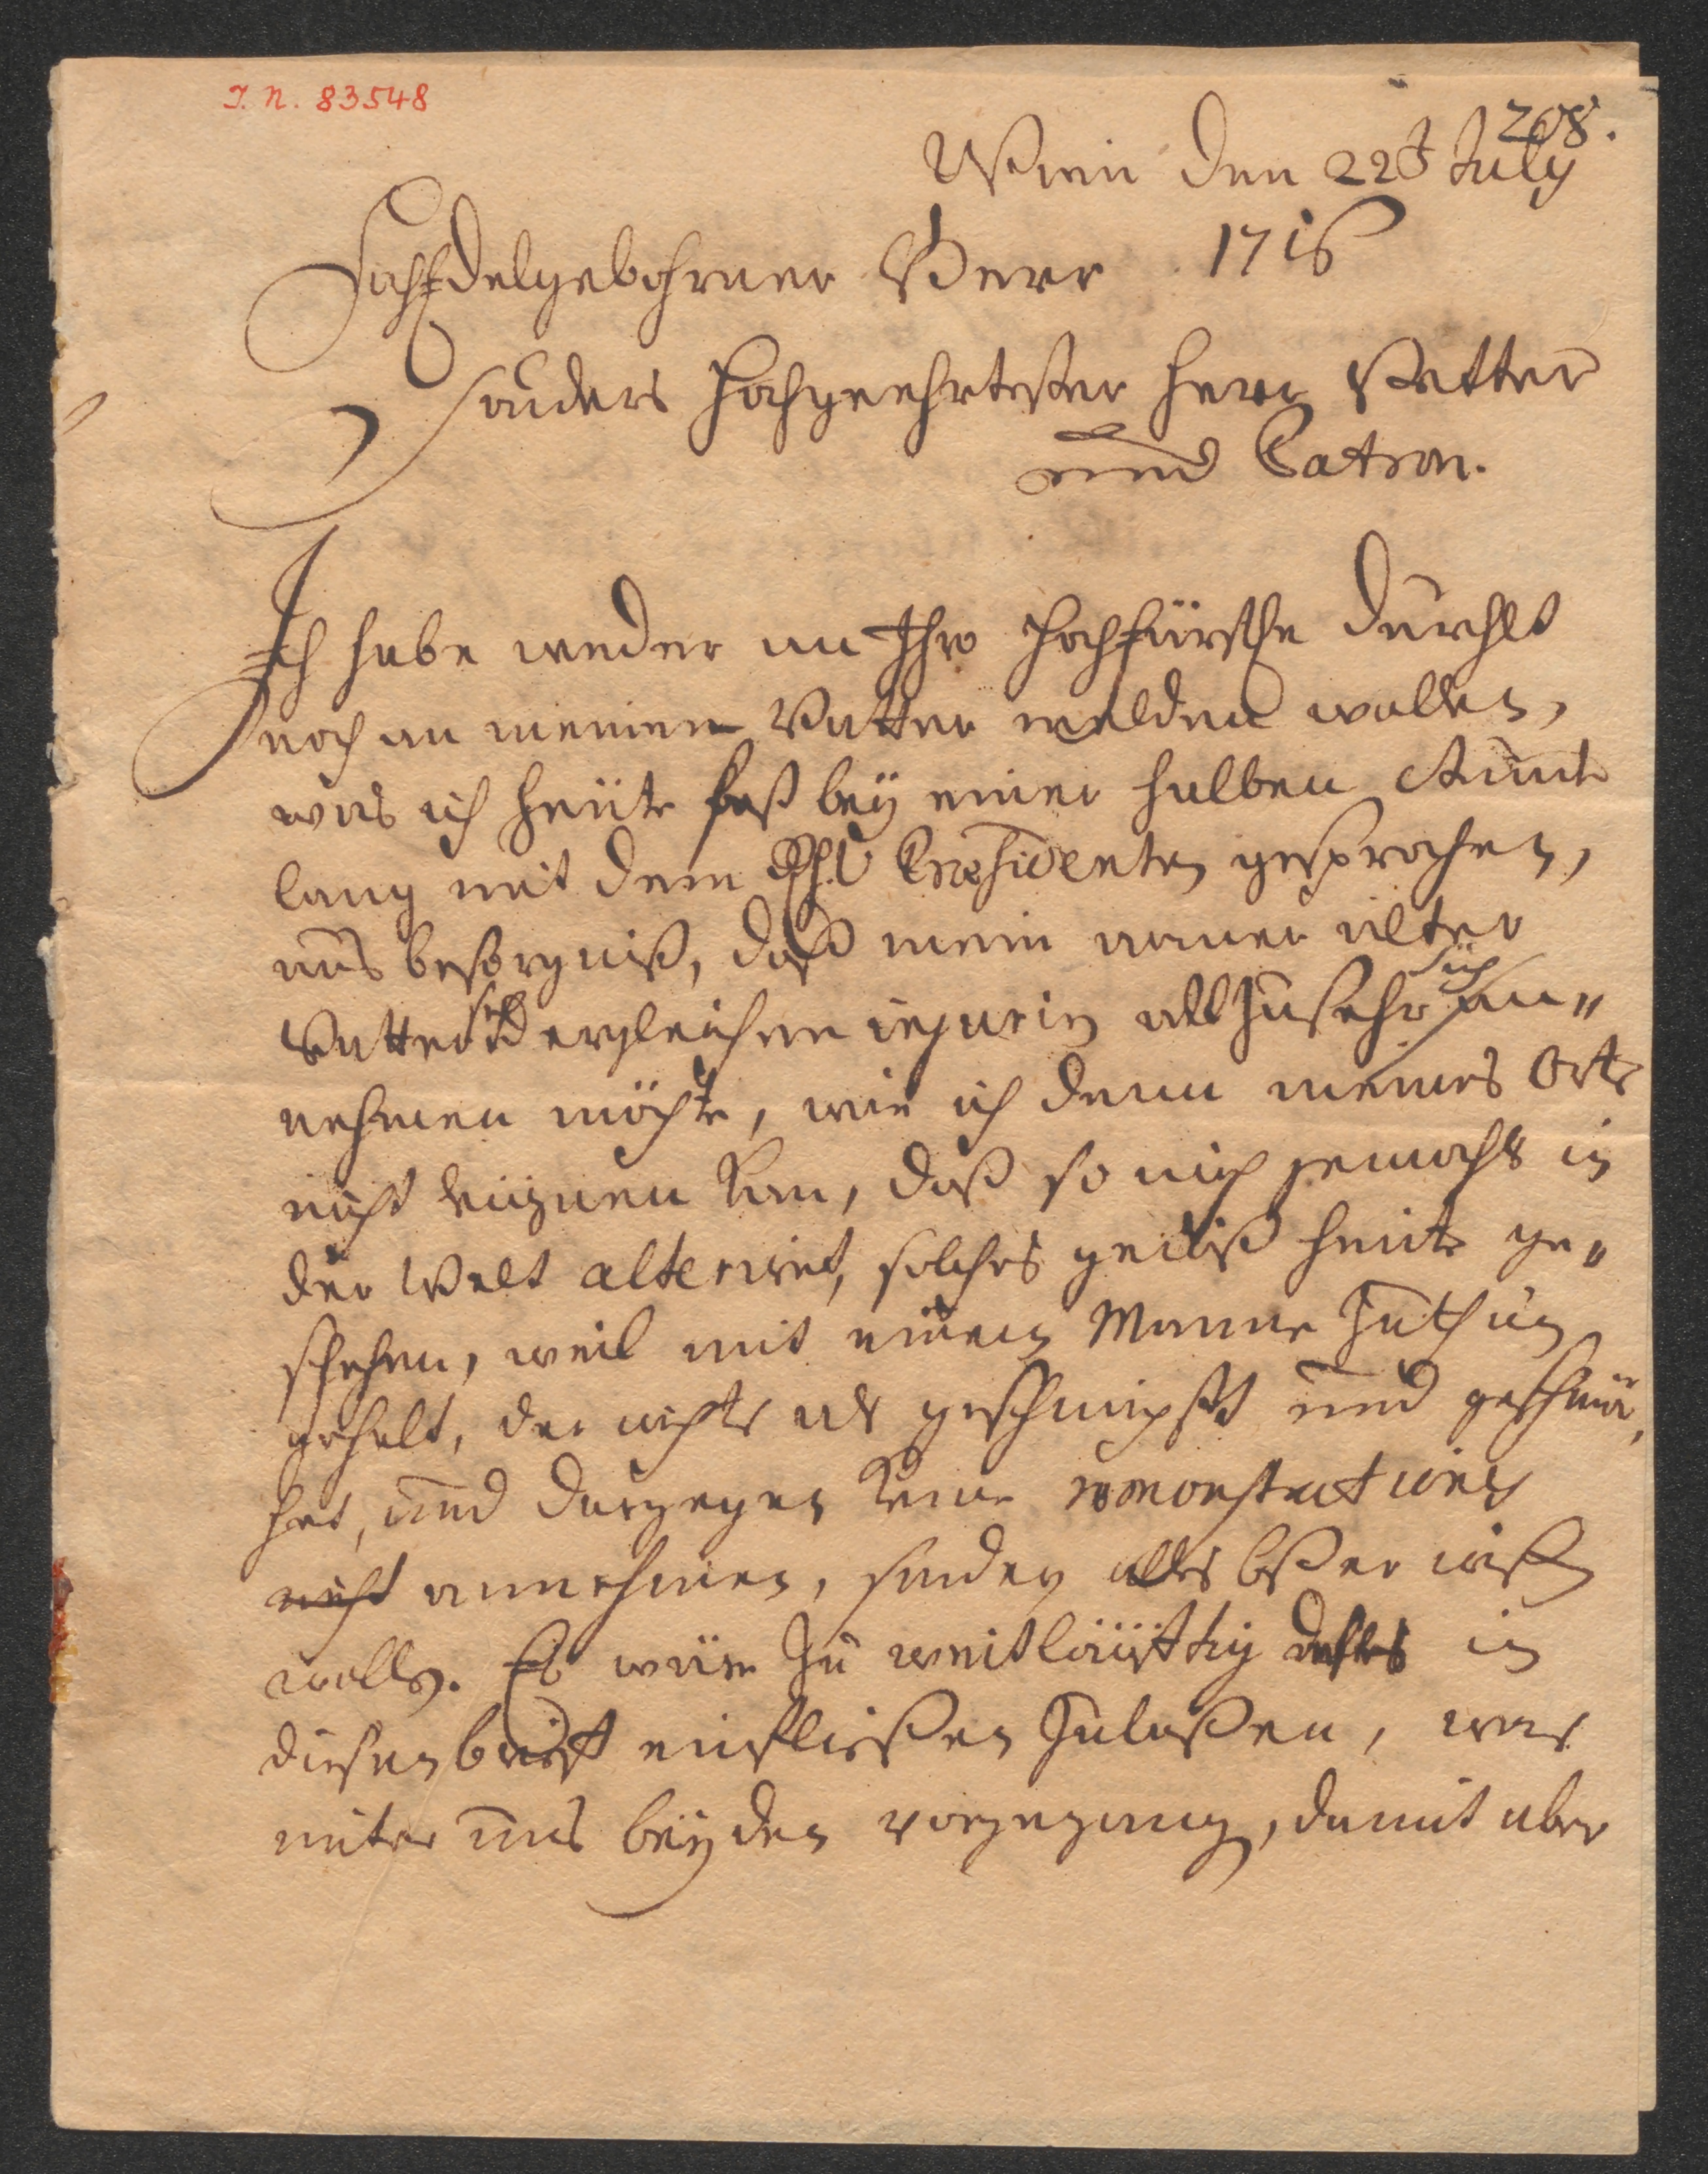 I. N. 83548
208.
Wien den 22t July
1716
HochEdelgebohrner Herr
sonders Hochgeehrtester Herr Vetter
und Patron.
Ich habe weder an Ihro Hochfürstle Durchlt
noch an meinen Vatter melden wollen,
was ich heüte fast bey einer halben Stund
lang mit dem Præsidenten gesprochen,
aus besorgniß, daß mein armer alter
Vatter sich dergleichen injurien allzusehr an„
nehmen möchte, wie ich denn meines Orts
nicht leügnen kan, daß so mich jemahls in
der Welt alteriret, solches gewiß heüte ge„
schehen, weil mit einem Manne zuthun
gehabt, der nichts als geschimpfft und geschmä,
het, und dargegen keine remonstration
nicht annehmen, sondern alles beßer wißen
wollen. Es wäre zu weitläüfftig in
diesen brieff einfließen zulaßen, was
unter uns beyden vorgegangen, damit aber